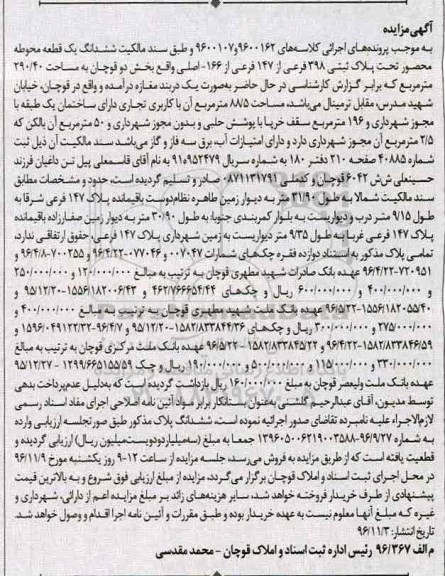 آگهی مزایده
به موجب پرونده‌های اجرائی کلاسه‌های ۹۶۰۰۱۶۲ و ۹۶۰۰۱۰۷ و طبق سند مالکیت ششدانگ یک قطعه محوطه
محصور تحت پلاک ثبتی ۳۹۸ فرعی از ۱۴۷ فرعی از ۱۶۶- اصلی واقع بخش دو قوچان به مساحت ۲۹۰/۴۰
مترمربع که برابر گزارش کارشناسی در حال حاضر به‌صورت یک دربند مغازه درآمده و واقع در قوچان، خیابان
شهید مدرس، مقابل ترمینال می‌باشد، مساحت ۸۸۵ مترمربع آن با کاربری تجاری دارای ساختمان یک طبقه با
مجوز شهرداری و ۱۹۶ مترمربع سقف خرپا با پوشش حلبی و بدون مجوز شهرداری و ۵۰ مترمربع آن بالکن که
۲/۵ مترمربع آن مجوز شهرداری دارد و دارای امتیازات آب، برق سه فاز و گاز می‌باشد. سند مالکیت آن ذیل ثبت
۴۰۸۸۵ صفحه ۲۱۰ دفتر ۱۸۰ به شماره سریال ۹۱۰۹۵۲۴۷۹ به نام آقای قاسمعلی پیل تن داغیان فرزند
حسینعلی ش‌ش ۶۰۴۲ قوچان و کدملی ۰۸۷۱۱۳۱۷۹۱ صادر و تسلیم گردیده است، حدود و مشخصات مطابق
سند مالکیت شمالا به طول ۲۱/۹۰ متر به دیوار زمین طاهره نظام‌دوست باقیمانده پلاک ۱۴۷ فرعی شرقا به
طول ۹/۱۵ متر درب و دیواریست به بلوار کمربندی جنوبا، به طول ۳۰/۹۰ متر به دیوار زمین صفارزاده باقیمانده
پلاک ۱۴۷ فرعی غربا به طول ۹/۳۵ متر دیواریست به زمین شهرداری پلاک ۱۴۷ فرعی، حقوق ارتفاقی ندارد،
تمامی پلاک مذکور به استناد دوازده فقره چک‌های شمارات ۰۰۷۰۴۷ و ۰۷۷۰۴۶-۹۶/۴/۲۲ و ۷۰۰۲۵۵-۹۶/۴/۸ و
۷۲۰۹۵۱-۹۶/۴/۲۲ عهده بانک صادرات شهید مطهری قوچان به ترتیب به مبالغ ۱۲۰/۰۰۰/۰۰۰ و ۲۵۰/۰۰۰/۰۰۰
و ۴۰۰/۰۰۰/۰۰۰ و ۶۰۰/۰۰۰/۰۰۰ ریال و چک‌های ۴۶۲/۷۶۶۶۵۴/۴۴ و ۱۵۵۶/۱۸۲۰۰۶/۴۳-۹۵/۱۲/۲۰ و
۱۵۵۶/۱۸۲۰۵۵/۴۰-۹۶/۵/۲۲ عهده بانک ملت شهید مطهری قوچان به ترتیب به مبالغ ۴۰۰/۰۰۰/۰۰۰ و
۲۷۵/۰۰۰/۰۰۰ و ۳۰۰/۰۰۰/۰۰۰ ریال و چک‌های ۱۵۸۲/۸۳۳۸۴۴/۳۶-۹۵/۱۲/۲۰ و ۱۵۹۶/۰۴۹۱۲۲/۳۲-۹۶/۴/۷ و
۱۵۸۲/۸۳۳۸۴۶/۵۹-۹۶/۴/۲۲ و ۱۵۸۲/۸۳۳۸۴۵/۲۲-۹۶/۵/۲۲ عهده بانک ملت مرکزی قوچان به ترتیب به مبالغ
۳۳۰/۰۰۰/۰۰۰ و ۱۱۵/۰۰۰/۰۰۰ و ۵۰/۰۰۰/۰۰۰ و ۱۹۰/۰۰۰/۰۰۰ ریال و چک ۱۲۹۹/۶۶۵۱۵۵/۵۹-۹۵/۱۲/۲۷
عهده بانک ملت ولیعصر قوچان به مبلغ ۱۶۰/۰۰۰/۰۰۰ ریال بازداشت گردیده است که به‌دلیل عدم پرداخت بدهی
توسط مدیون، آقای عبدالرحیم گلشنی به‌عنوان بستانکار برابر مواد آئین نامه اصلاحی اجرای مفاد اسناد رسمی
لازم‌الاجراء علیه نامبرده تقاضای صدور اجرائیه نموده است، ششدانگ پلاک مذکور طی صورتجلسه ارزیابی وارده
به شماره ۱۳۹۶۰۵۰۰۶۲۱۹۰۰۳۵۸۸-۹۶/۹/۲۷ جمعا به مبلغ (سه‌میلیاردودویست‌میلیون ریال) ارزیابی گردیده و
قطعیت یافته است که از طریق مزایده به فروش می‌رسد، جلسه مزایده از ساعت ۱۲-۹ روز یکشنبه مورخ ۹۶/۱۱/۹
در محل اجرای ثبت اسناد و املاک قوچان برگزار می‌گردد، مزایده از مبلغ ارزیابی فوق شروع و به بالاترین قیمت
پیشنهادی از طرف خریدار فروخته خواهد شد، سایر هزینه‌های زائد بر مبلغ مزایده اعم از دارائی، شهرداری و
غیره که مبلغ آنها معلوم نیست به عهده خریدار بوده و طبق مقررات و آئین نامه اجرا اقدام و وصول خواهد شد.
تاریخ انتشار: ۹۶/۱۱/۳
م الف ۹۶/۳۶۷ رئیس اداره ثبت اسناد و املاک قوچان - محمد مقدسی